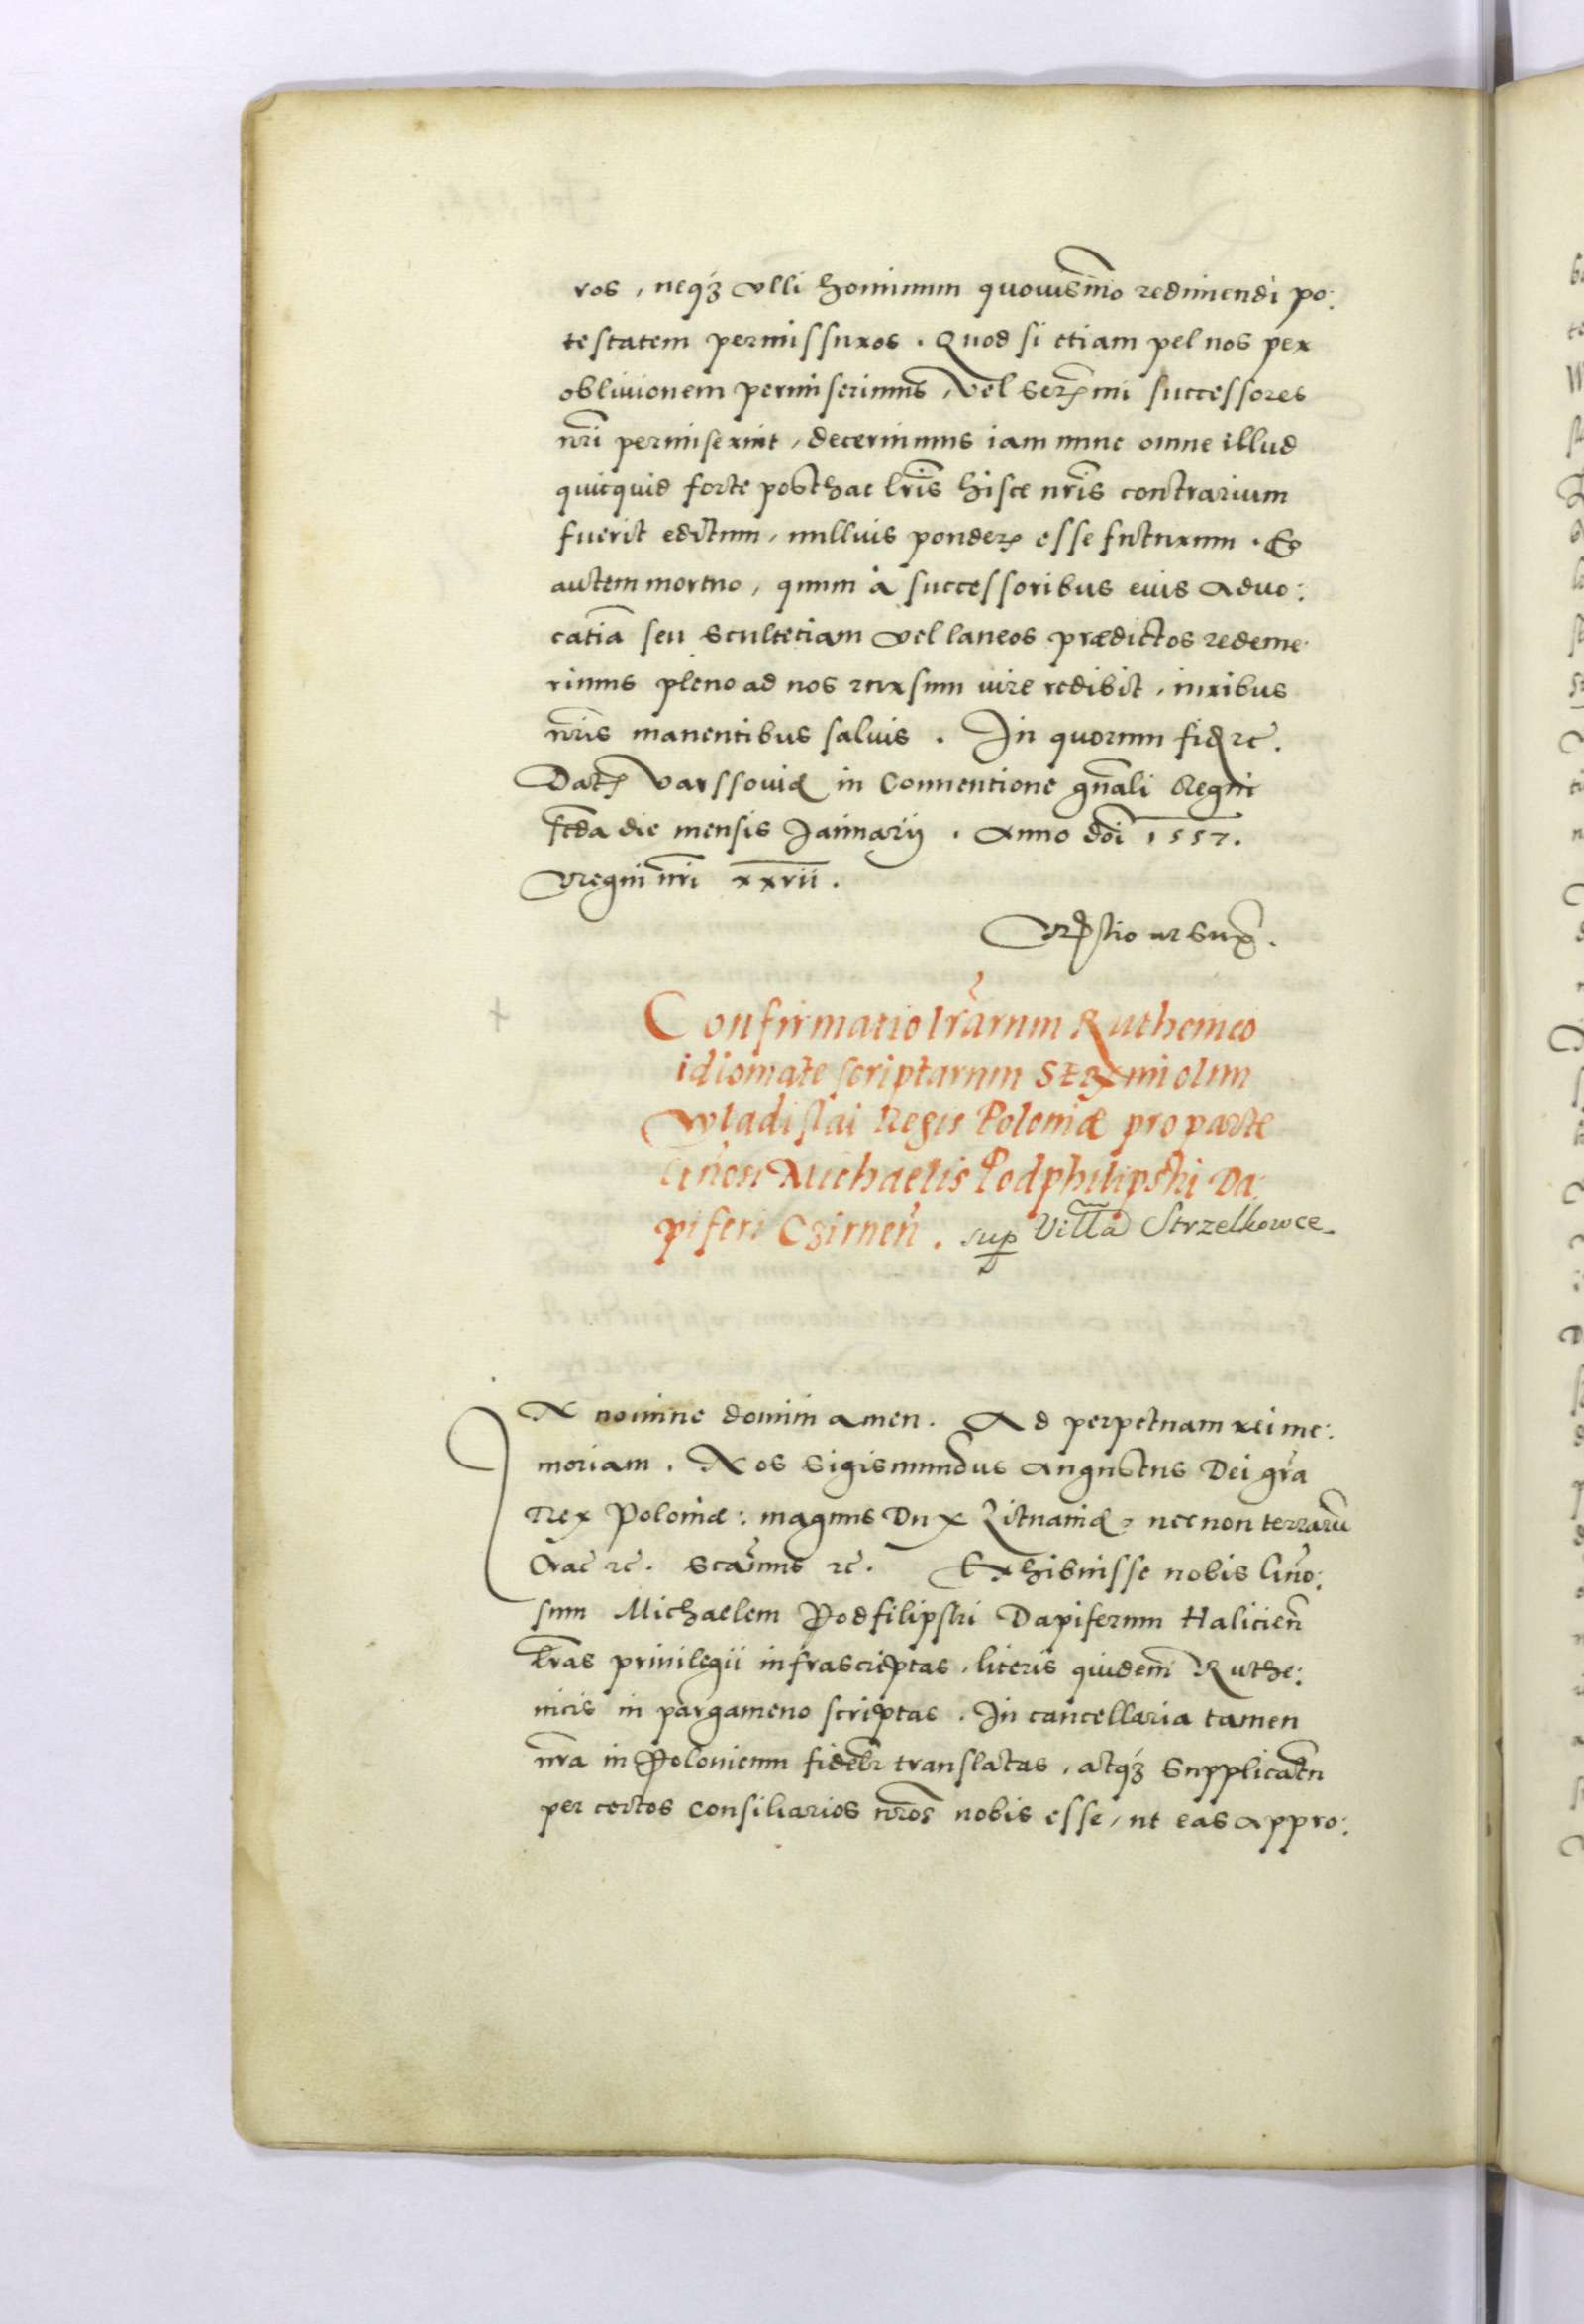 ros, neq3 vlli hominum quouismo redimendi po:
testatem permissuros. Quod si etiam vel nos per
obliuionem permiserimus, vel Serꝫmi successores
nr̃i permiserint, decernimus iam nunc omne illud
quicquid forte posthac lr̃is hisce nr̃is contrarium
fuerit editum, nullius ponderꝫ esse futurum. Eo
autem mortuo, quum à successoribus eius aduo:
catiã seu scultetiam vel laneos prædictos redeme:
rimus pleno ad nos rursum iure redibit, iuribus
nr̃is manentibus saluis. In quorum fid ꝛc̃.
Datꝫ Varssouiæ in Conuentione gñali Regni
scđa die mensis Januarij. Anno dõi 1557.
Regni nr̃i xxvii.
Rela̅tio ut Supꝫ.
Confirmatio lr̃arum Ruthenico
idiomate scriptarum Serꝫmi olim
Wladislai Regis Poloniæ pro parte
Gñosi Michaelis Podphilipski Da:
piferi Czirneñ. sup Villã Strzelkowce.
IN nomine domini amen. Ad perpetuam rei me:
moriam. Nos Sigismundus Augustus Dei gr̃a
Rex Poloniæ: magnus Dux Lituaniæ, nec non terrarũ
Crac̃ ꝛc̃. Scãimus ꝛc̃. Exhibuisse nobis Gño:
sum Michaelem Podfilipski Dapiferum Halicieñ
lr̃as priuilegii infrascriptas, literis quidem Ruthe:
nicis in pargameno scriptas. In cancellaria tamen
nr̃a in Polonicum fidelr̃ translatas, atq3 Supplicatũ
per certos consiliarios nr̃os nobis esse, ut eas appro: